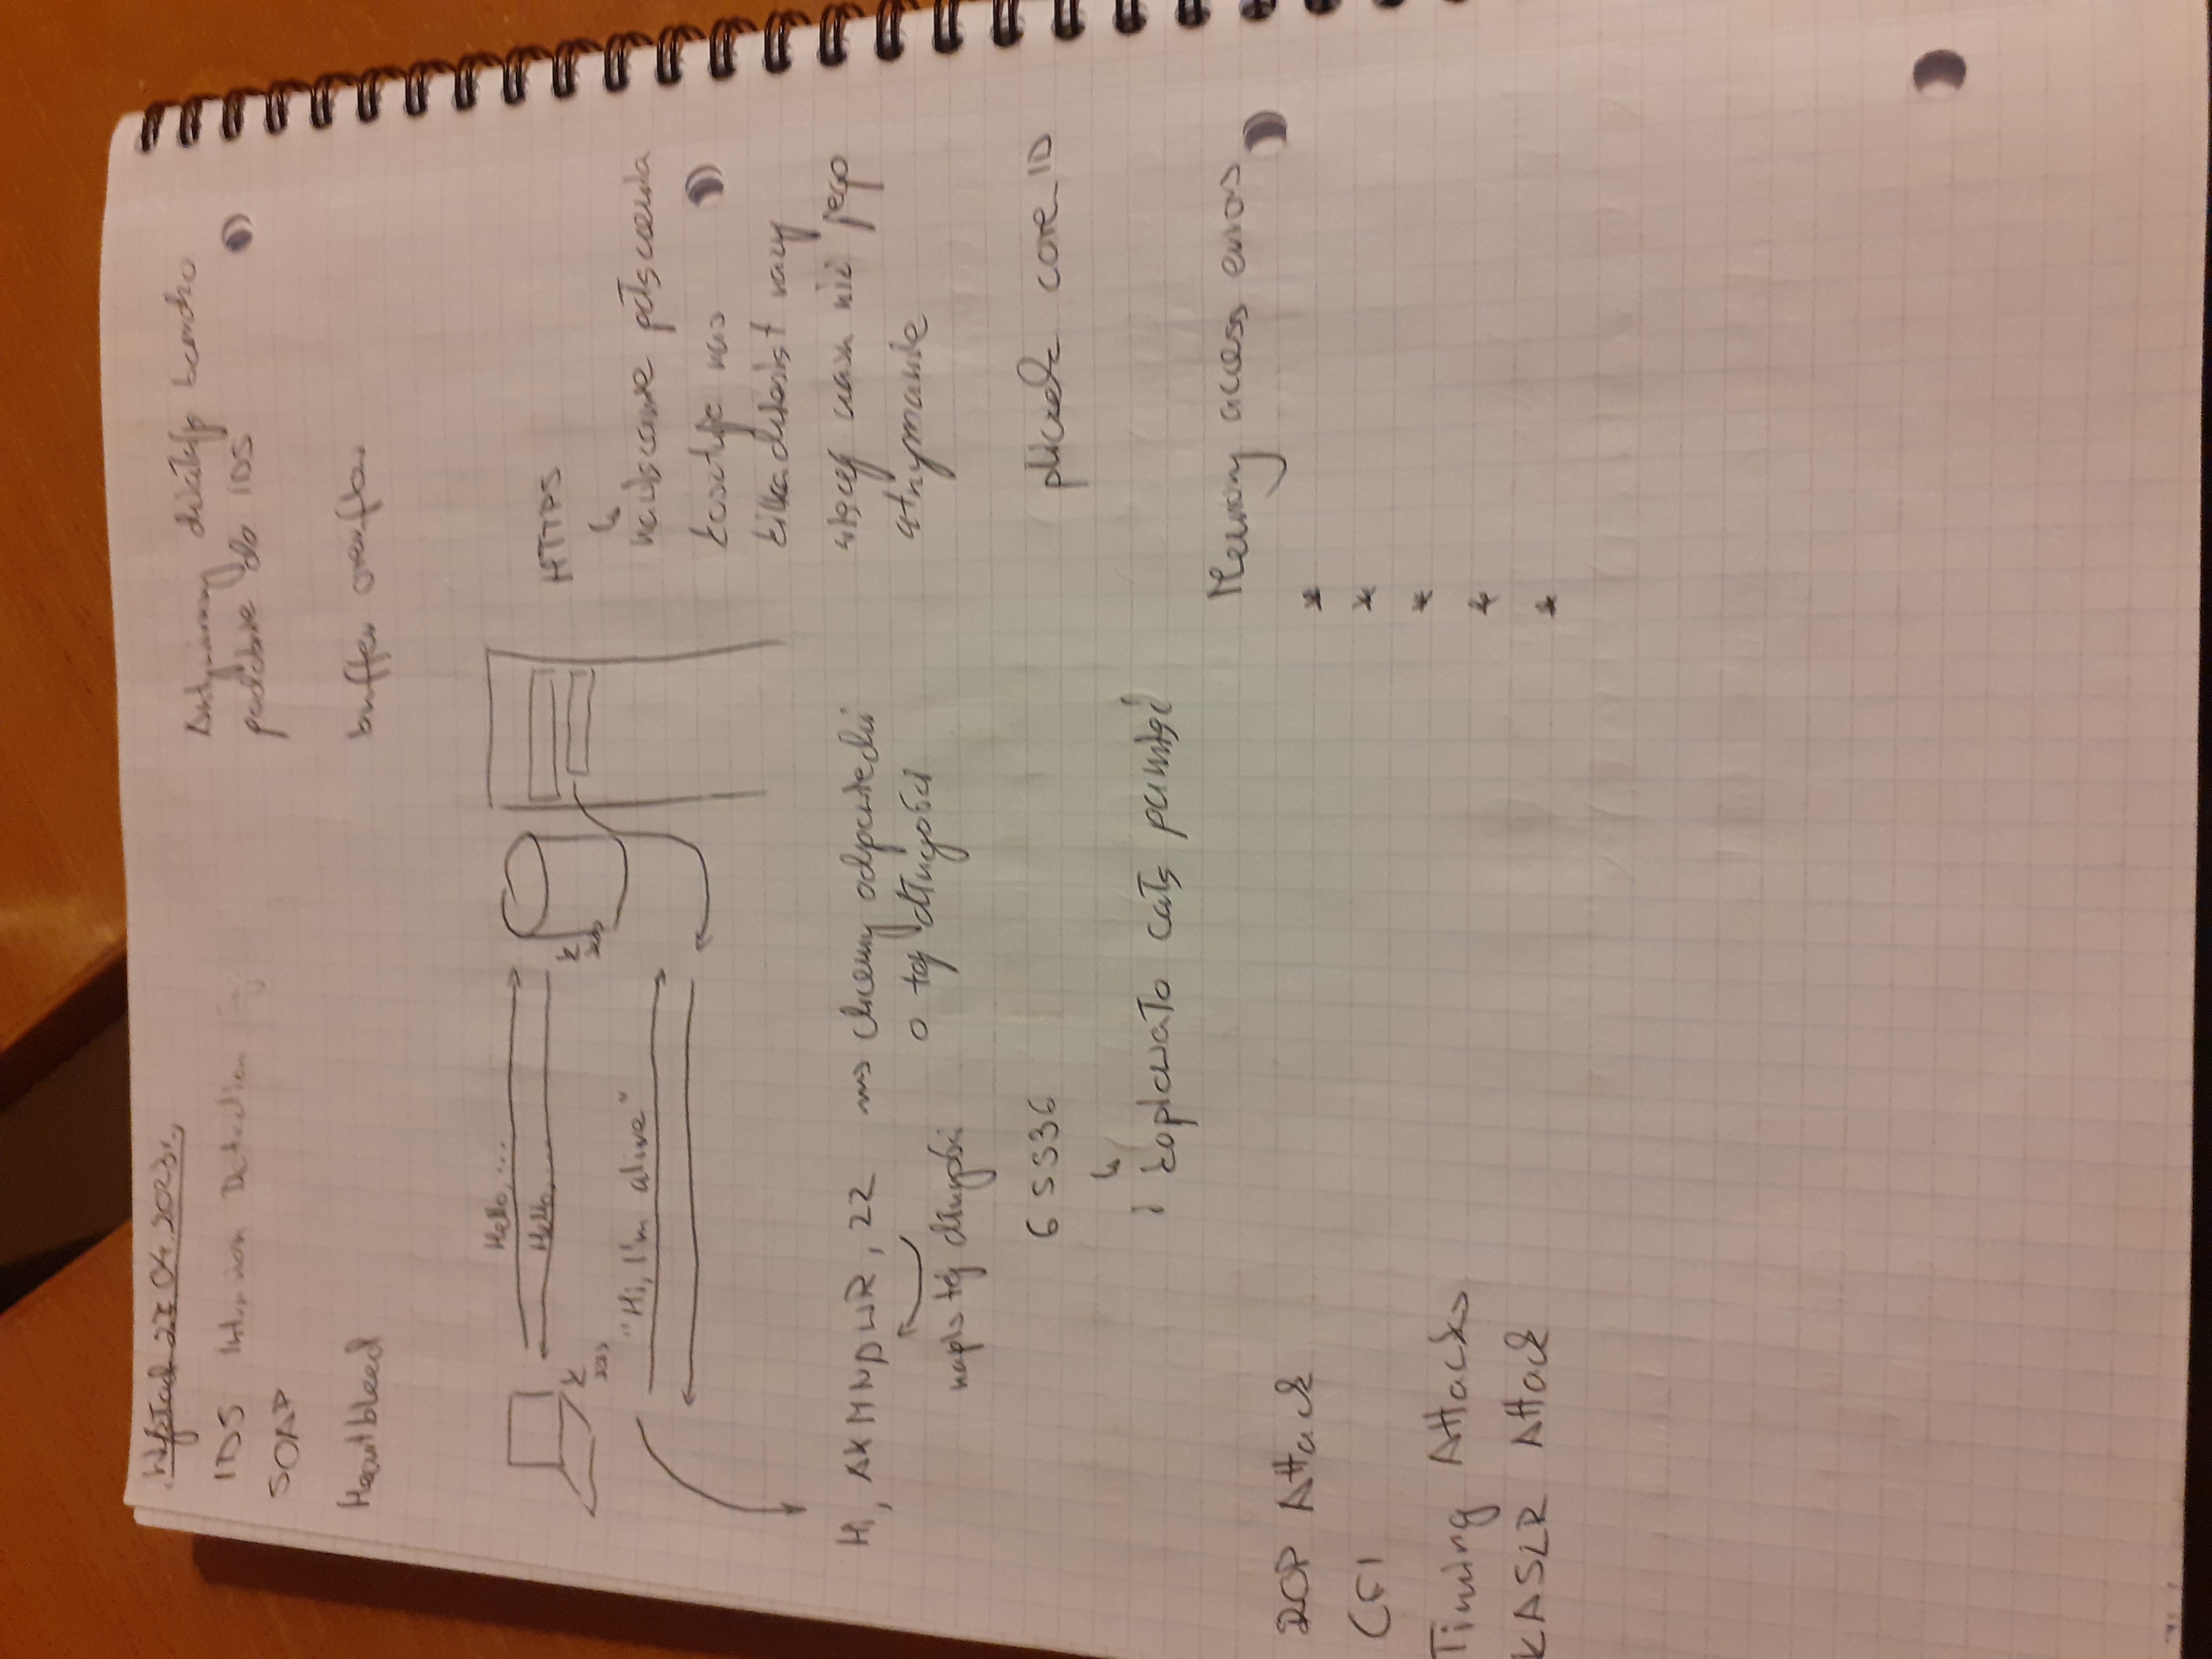 Wykład 27.04.2023r.
IDS Intrusion Detection
SOAP
Antywirusy działają bardzo
podobnie do IDS
Heartbleed
buffer overflow
Hello, ...
Hello, ...
"Hi, I'm alive"
HTTPS
nawiązanie połączenia
kosztuje nas
kilkadziesiąt razy
więcej czasu niż jego
utrzymanie
Hi, AKMNDWR, 22 chcemy odpowiedzi
o tej długości
napis tej długości
65536
i kopiowało całą pamięć
pliczek core ID
Memory access errors
*
*
*
*
*
ROP Attack
CFI
Timing Attacks
KASLR Attack